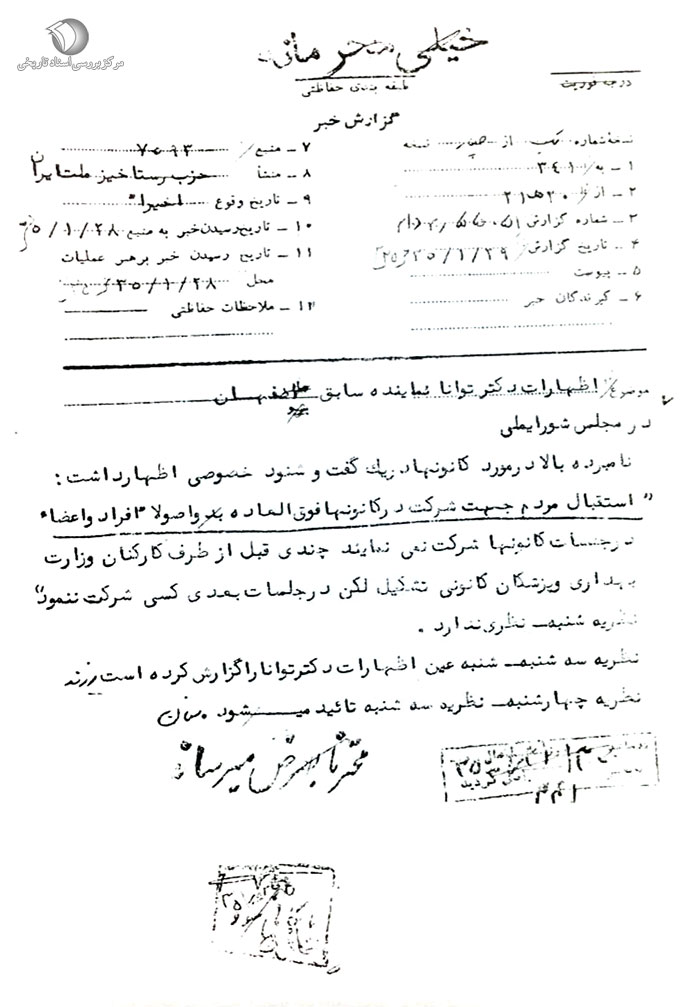 مرکز بررسی اسناد تاریخی
خیلی محرمانه
طبقه بندی حفاظتی
درجه فوریت
گزارش خبر
نسخه شماره یک از چهار نسخه
۱ ـ به ۳۴۱
۲ ـ از ۲۱ ه ۲۰
۳ ـ شماره گزارش
۴ ـ تاریخ گزارش ۳۵/۱/۲۹
۵ ـ پیوست
۶ ـ گیرندگان خبر
۷ ـ منبع ۷۵۹۳
۸ ـ منشأ حزب رستاخیز ملت ایران
۹ ـ تاریخ وقوع اخیرا"
۱۰ ـ تاریخ رسیدن خبر به منبع ۳۵/۱/۲۸
۱۱ ـ تاریخ رسیدن خبر برهبر عملیات
محل ۳۵/۱/۲۸
۱۲ ـ ملاحظات حفاظتی
موضوع اظهارات دکتر توانا نماینده سابق اصفهان
در مجلس شورایملی
نامبرده بالا در مورد کانونها در یک گفت و شنود خصوصی اظهار داشت :
" استقبال مردم جهت شرکت در کانونها فوق العاده بد و اصولا" افراد و اعضاء
در جلسات کانونها شرکت نمی نمایند چندی قبل از طرف کارکنان وزارت
بهداری و پزشکان کانونی تشکیل لکن در جلسات بعدی کسی شرکت ننمود"
نظریه شنبه ـ نظری ندارد .
نظریه سه شنبه ـ شنبه عین اظهارات دکتر توانا را گزارش کرده است
نظریه چهارشنبه ـ نظریه سه شنبه تائید میشود .
محترماً بعرض میرساند